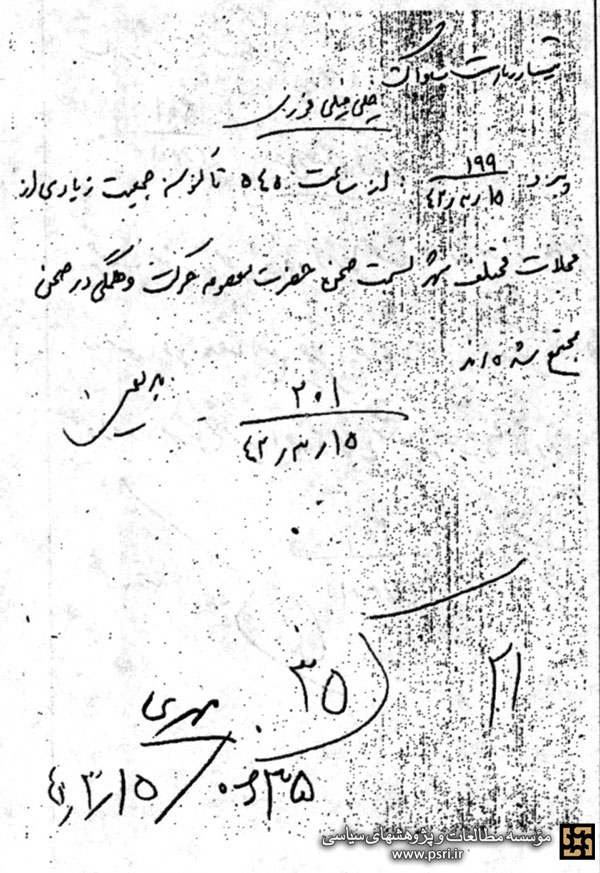 تیمسار ریاست ساواک
خیلی خیلی فوری
پیرو ۱۹۹ ۴۲٫۳٫۱۵ از ساعت ۵۴۵ تاکنون جمعیت زیادی از
محلات مختلف شهر بسمت صحن حضرت معصومه حرکت و همگی در صحن
مجتمع شده اند
بدیعی
۲۰۱
۴۲٫۳٫۱۵
۲۱
۳۵
مهدی
۰۶۳۵
۳٫۱۵
مؤسسه مطالعات و پژوهشهای سیاسی
www.psri.ir